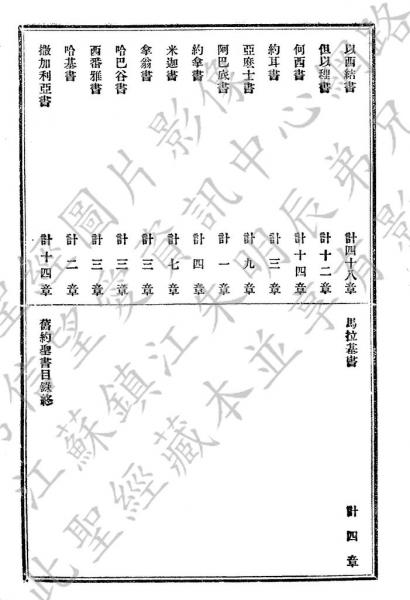 以西結書 計四十八章
但以理書 計十二章
何西書 計十四章
約耳書 計三章
亞麼士書 計九章
阿巴底書 計一章
約拿書 計四章
米迦書 計七章
拿翁書 計三章
哈巴谷書 計三章
西番雅書 計三章
哈基書 計二章
撒加利亞書 計十四章
馬拉基書 計四章
舊約聖書目錄終
聖經圖片影像
信望愛資訊中心網路
江蘇鎮江朱明辰弟兄
此聖經藏本並享有影